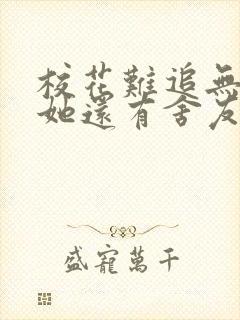 校花難追無
她還有舍友
盛寵萬千